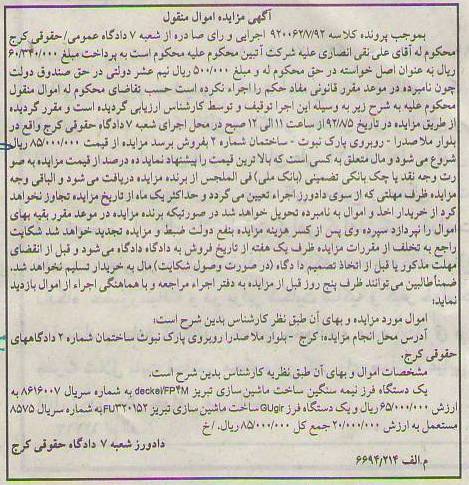 آگهی مزایده اموال منقول
بموجب پرونده کلاسه ۹۲۰۰۶۲/۷/۹۲ اجرایی و رای صادره از شعبه ۷ دادگاه عمومی/حقوقی کرج
محکوم له آقای علی نقی انصاری علیه شرکت آتبین محکوم علیه محکوم است به پرداخت مبلغ ۶۰/۳۴۰/۰۰۰
ریال به عنوان اصل خواسته در حق محکوم له و مبلغ ۵۰۰/۰۰۰ ریال نیم عشر دولتی در حق صندوق دولت
چون نامبرده در موعد مقرر قانونی مفاد حکم را اجراء نکرده است حسب تقاضای محکوم له اموال منقول
محکوم علیه به شرح زیر به وسیله این اجرا توقیف و توسط کارشناس ارزیابی گردیده است و مقرر گردیده
از طریق مزایده در تاریخ ۹۲/۸/۵ از ساعت ۱۱ الی ۱۲ صبح در محل اجرای شعبه ۷ دادگاه حقوقی کرج واقع در
بلوار ملاصدرا - روبروی پارک نبوت - ساختمان شماره ۲ بفروش برسد مزایده از قیمت ۸۵/۰۰۰/۰۰۰ ریال
شروع می شود و مال متعلق به کسی است که بالاترین قیمت را پیشنهاد نماید ده درصد از قیمت مزایده به صو
رت وجه نقد یا چک بانکی تضمینی (بانک ملی) فی المجلس از برنده مزایده دریافت می شود و الباقی وجه
مزایده ظرف مهلتی که از سوی دادورز اجراء تعیین می گردد و حداکثر یک ماه از تاریخ مزایده تجاوز نخواهد
کرد از خریدار اخذ و اموال به نامبرده تحویل خواهد شد در صورتیکه برنده مزایده در موعد مقرر بقیه بهای
اموال را نپردازد سپرده وی پس از کسر هزینه مزایده بنفع دولت ضبط و مزایده تجدید خواهد شد شکایت
راجع به تخلف از مقررات مزایده ظرف یک هفته از تاریخ فروش به دادگاه داده می شود و قبل از انقضای
مهلت مذکور یا قبل از اتخاذ تصمیم دادگاه (در صورت وصول شکایت) مال به خریدار تسلیم نخواهد شد.
ضمناً طالبین می توانند ظرف پنج روز قبل از مزایده به دفتر اجراء مراجعه و با هماهنگی اجراء از اموال بازدید
نمایند.
اموال مورد مزایده و بهای آن طبق نظر کارشناس بدین شرح است:
آدرس محل انجام مزایده: کرج - بلوار ملاصدرا روبروی پارک نبوت ساختمان شماره ۲ دادگاههای
حقوقی کرج.
مشخصات اموال و بهای آن طبق نظریه کارشناس بدین شرح است.
یک دستگاه فرز نیمه سنگین ساخت ماشین سازی تبریز deckel/FP۴M به شماره سریال ۸۶۱۶۰۰۷ به
ارزش ۶۵/۰۰۰/۰۰۰ ریال و یک دستگاه فرز GUgir ساخت ماشین سازی تبریز FU۳۲۰۱۵۲ به شماره سریال ۸۵۷۵
مستعمل به ارزش ۲۰/۰۰۰/۰۰۰ جمع کل ۸۵/۰۰۰/۰۰۰ ریال. /خ
دادورز شعبه ۷ دادگاه حقوقی کرج
م.الف ۶۶۹۴/۲۱۴